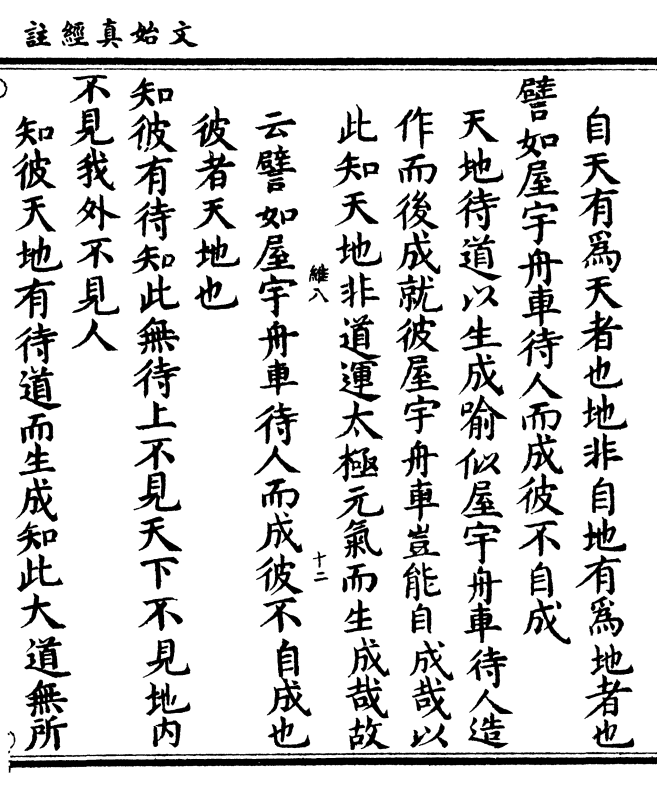 文始真經註
自天有爲天者也地非自地有爲地者也
譬如屋宇舟車待人而成彼不自成
天地待道以生成喻似屋宇舟車待人造
作而後成就彼屋宇舟車豈能自成哉以
此知天地非道運太極元氣而生成哉故
維八
十二
云譬如屋宇舟車待人而成彼不自成也
彼者天地也
知彼有待知此無待上不見天下不見地内
不見我外不見人
知彼天地有待道而生成知此大道無所